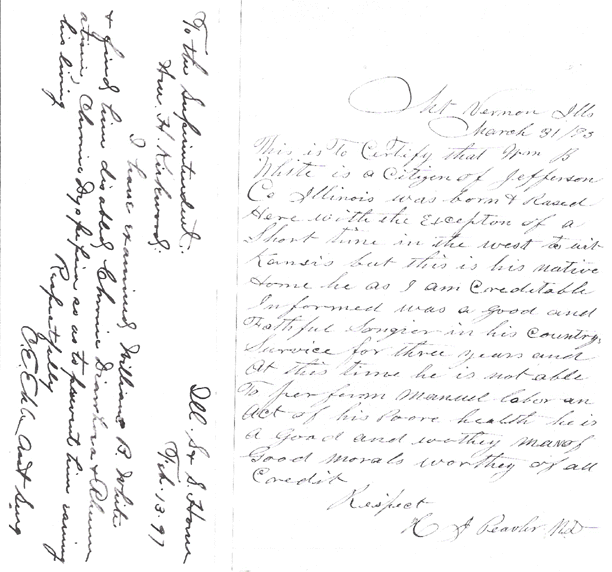 To the Superintendent.
Hon. H. Kirkwood.
Ill. S & S Home
Feb. 13. 97
I have examined William B White
& find him disabled Chronic Diarrhea & Rheum
atism, Chronic Dyspepsia so as to prevent him earning
his living
Respectfully
C. E. Asst Surg
Mt Vernon Ills
March 31/93
This is to Certify that Wm B
White is a Citizen of Jefferson
Co Illinois was born & Rased
Here with the Excepton of a
Short time in the west to wit
Kansis but this is his native
Home he as I am Creditable
Informed was a good and
Fathful Songier in his Country
Survice for three years and
At this time he is not able
To perform Manuel labor an
Act of his Poore health he is
a Good and worthey man of
Good morals worthey of all
Credit
Respect
H J Peavler MD